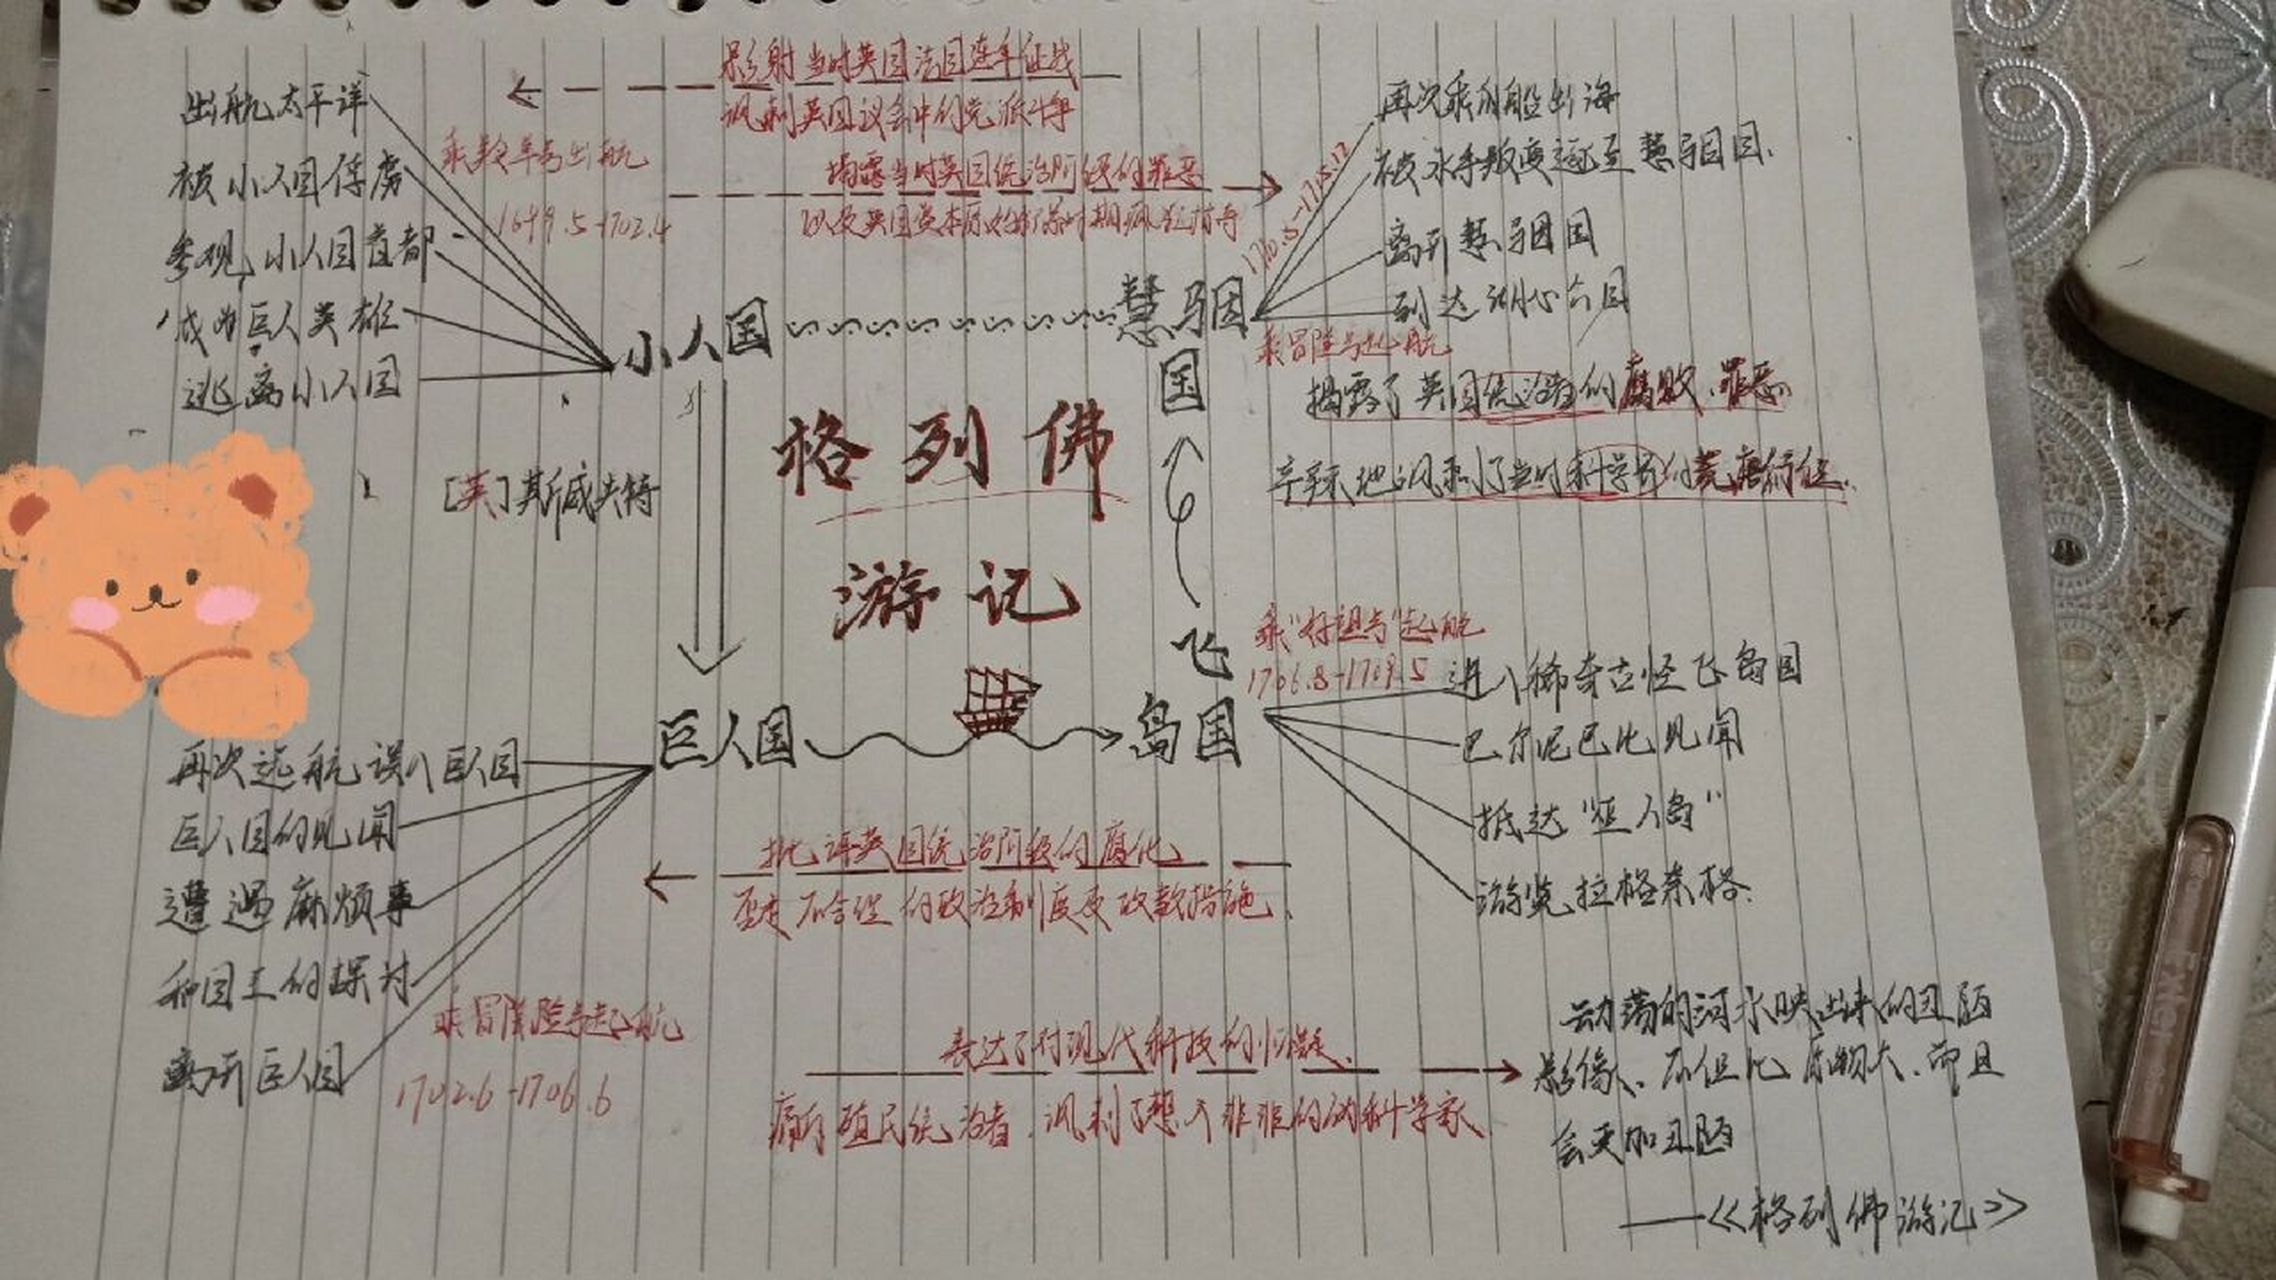 出航太平洋
被小人国俘虏
参观小人国首都
成为巨人英雄
逃离小人国
乘羚羊号出航
1699.5-1702.4
影射当时英国法国连年征战
讽刺英国议会中的党派斗争
揭露当时英国统治阶级的罪恶
以及英国资本原始积累时期疯狂
再次乘船出海
被水手叛变逐至慧骃国
离开慧骃国
到达
1710.8-1715.12
乘冒险号起航
揭露了英国统治者的腐败、罪恶
辛辣地讽刺了当时科学界的荒唐行径
小人国
慧骃国
格列佛
游记
[英]斯威夫特
巨人国
飞岛国
乘"好望号"起航
1706.8-1709.5
进入稀奇古怪飞岛国
巴尔尼巴比见闻
抵达"巫人岛"
游览拉格奈格
再次远航误入巨人国
巨人国的见闻
遭遇麻烦事
和国王的探讨
离开巨人国
乘冒险号起航
1702.6-1706.6
批评英国统治阶级的腐化
不合理的政治制度及政教措施
表达了对现代科技的怀疑、
痛斥殖民统治者、讽刺了想入非非的科学家
动荡的河水映出来的丑陋
影像、不但比原物大、而且
会更加丑陋
——《格列佛游记》